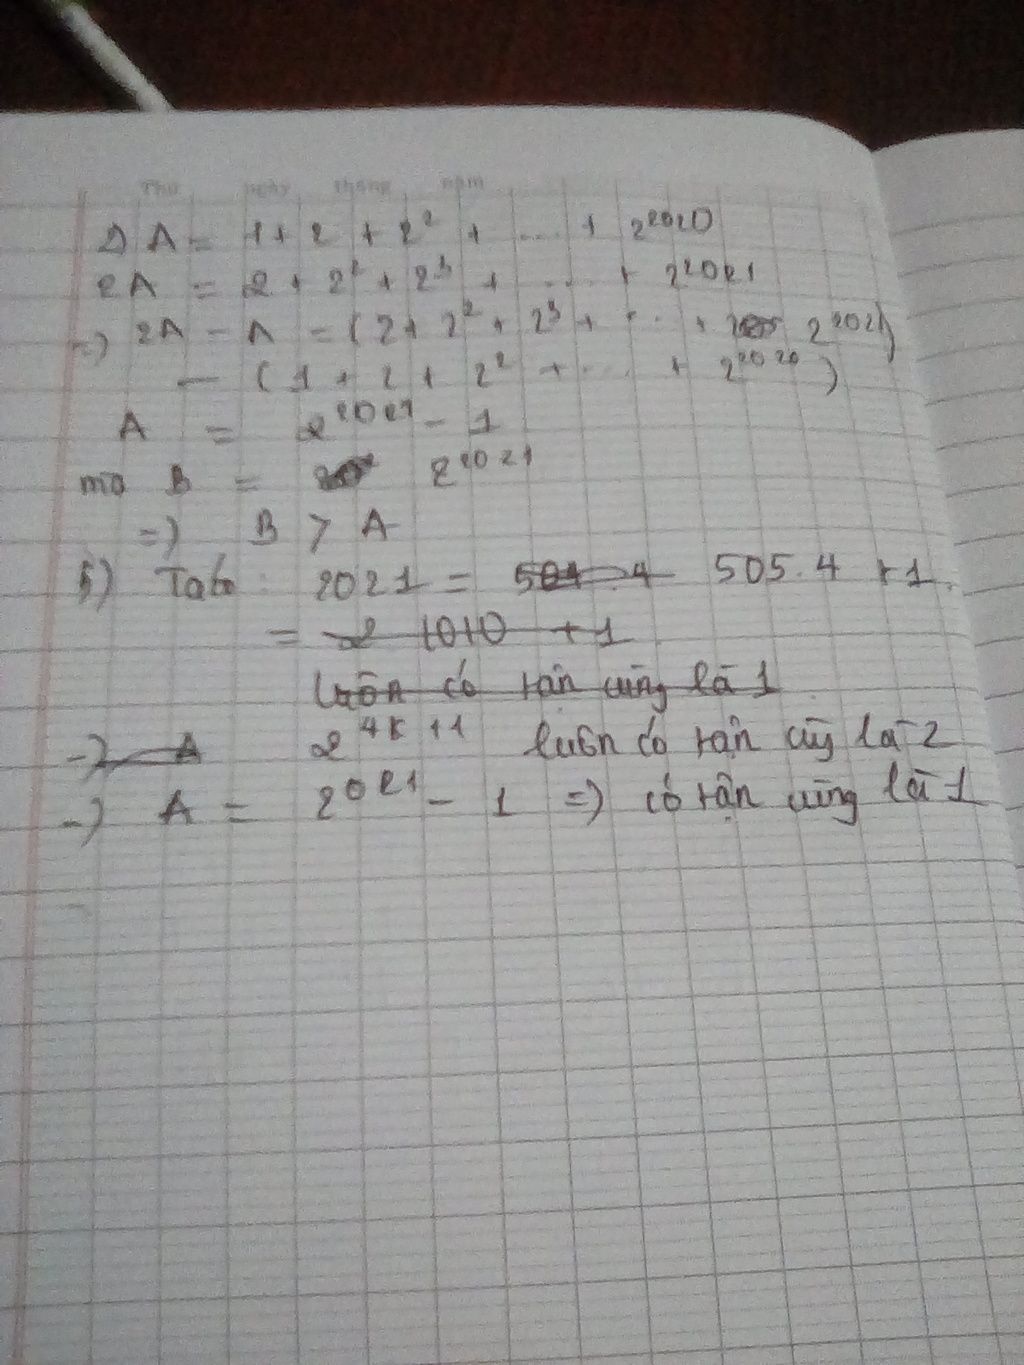 Thứ ngày tháng năm
1) A = 1 + 2 + 2² + .... + 2²⁰²⁰
2A = 2 + 2² + 2³ + .... + 2²⁰²¹
=) 2A - A = (2 + 2² + 2³ + ... + 2²⁰²¹)
- (1 + 2 + 2² + ... + 2²⁰²⁰)
A = 2²⁰²¹ - 1
mà B = 2²⁰²¹
=) B > A
b) Ta có 2021 = 504.4 505.4 + 1
= 2 1010 + 1
luôn có tận cùng là 1
-) A 2⁴ᵏ⁺¹ luôn có tận cùg là 2
-) A = 2²⁰²¹ - 1 =) có tận cùng là 1